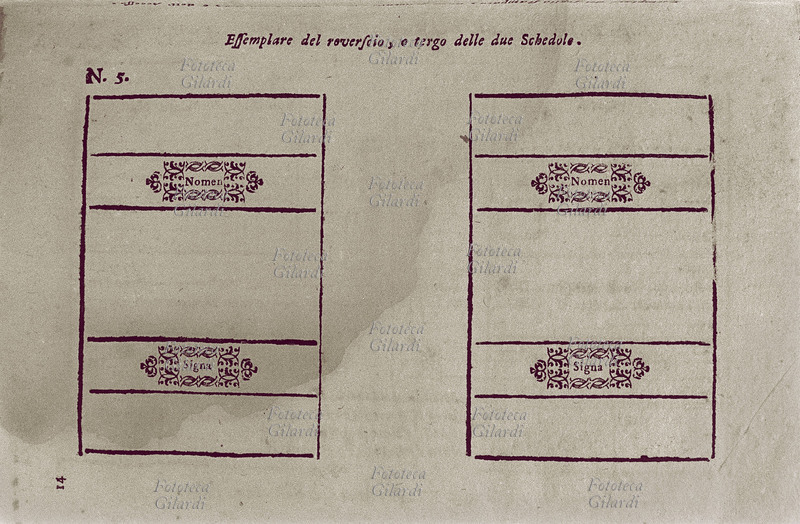 Eſſemplare del roverſcio, o tergo delle due Schedole.
N. 5.
Nomen
Nomen
Signa
Signa
14
Fototeca
Gilardi
Fototeca
Gilardi
Fototeca
Gilardi
Fototeca
Gilardi
Fototeca
Gilardi
Fototeca
Gilardi
Gilardi
Gilardi
Fototeca
Gilardi
Fototeca
Gilardi
Fototeca
Gilardi
Fototeca
Gilardi
Fototeca
Gilardi
Fototeca
Gilardi
Fototeca
Gilardi
Fototeca
Gilardi